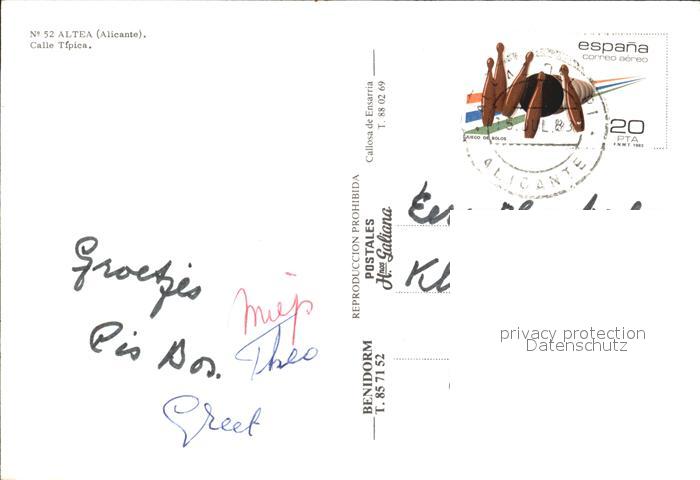 Nº 52 ALTEA (Alicante).
Calle Típica.
Groetjes
Miep
Pis Bos.
Theo
Greet
REPRODUCCION PROHIBIDA
BENIDORM
T. 85 71 52
POSTALES
H.nas Galiana
Callosa de Ensarria
T. 88 02 69
españa
correo aéreo
JUEGO DE BOLOS
20
PTA
F N M T 1983
ALICANTE
Kl
privacy protection
Datenschutz